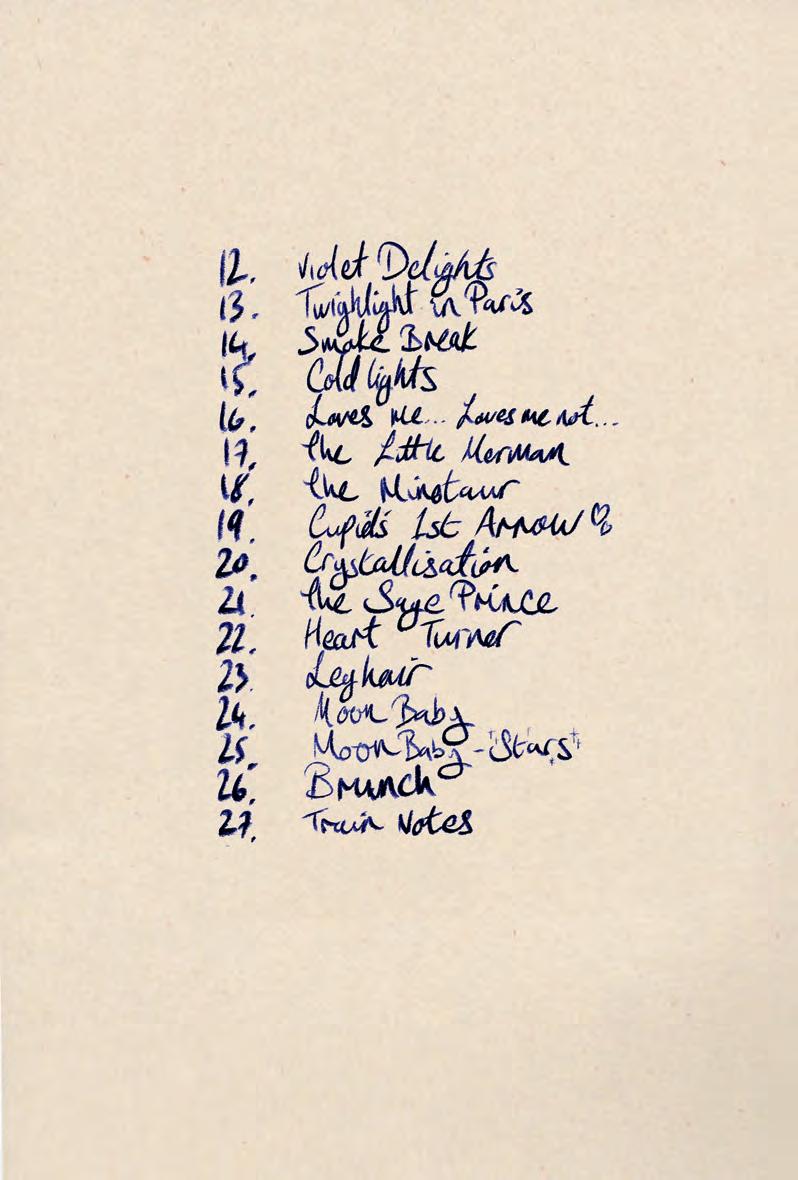 12. Violet Delights
13. Twighlight in Paris
14. Smoke Break
15. Cold lights
16. Loves me... Loves me not...
17. The Little Merman
18. The Minotaur
19. Cupid's 1st Arrow
20. Crystallisation
21. The Sage Prince
22. Heart Turner
23. Leg hair
24. Moon Baby
25. Moon Baby - "Stars"
26. Brunch
27. Train Notes